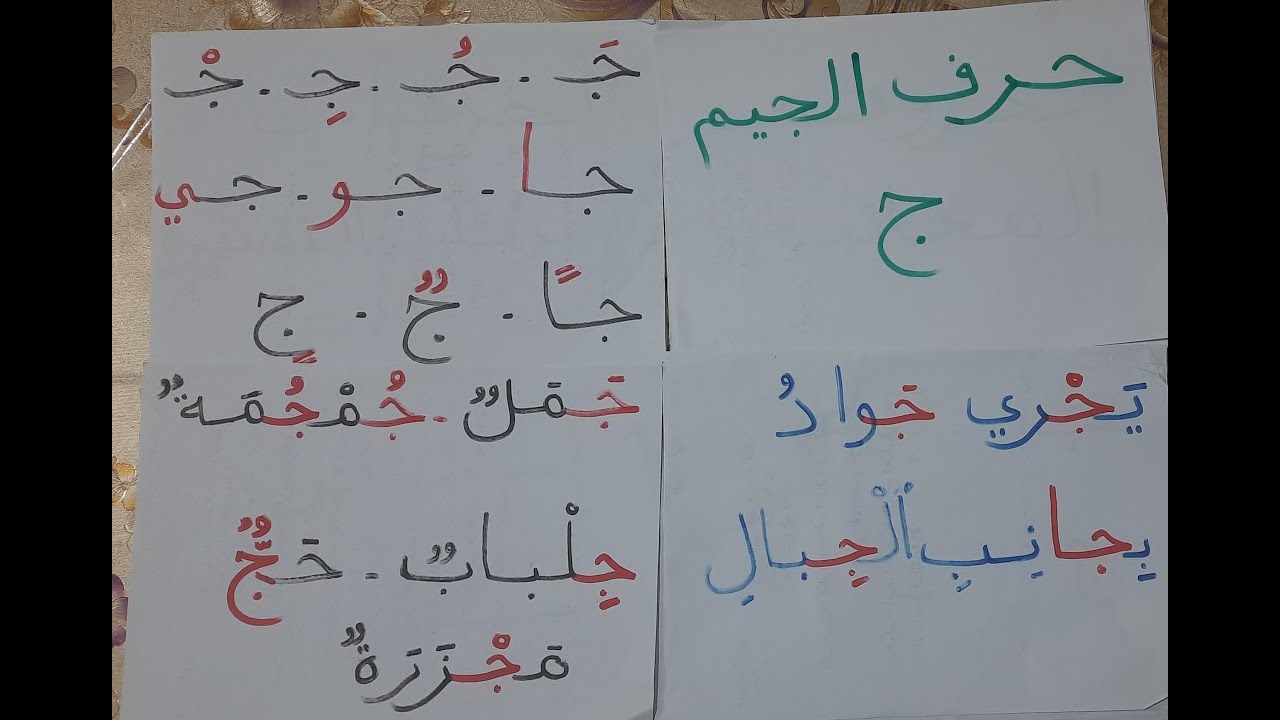 حرف الجيم
ج
جَ - جُ - جِ - جْ
جا - جو - جي
جاً - جٌ - جٍ
يَجْري جَوادُ
بِجانِبِ ٱلْجِبالِ
جَمَلٌ - جُمْجُمَةٌ
جِلْبابٌ - حَجٌّ
مَجْزَرَةٌ